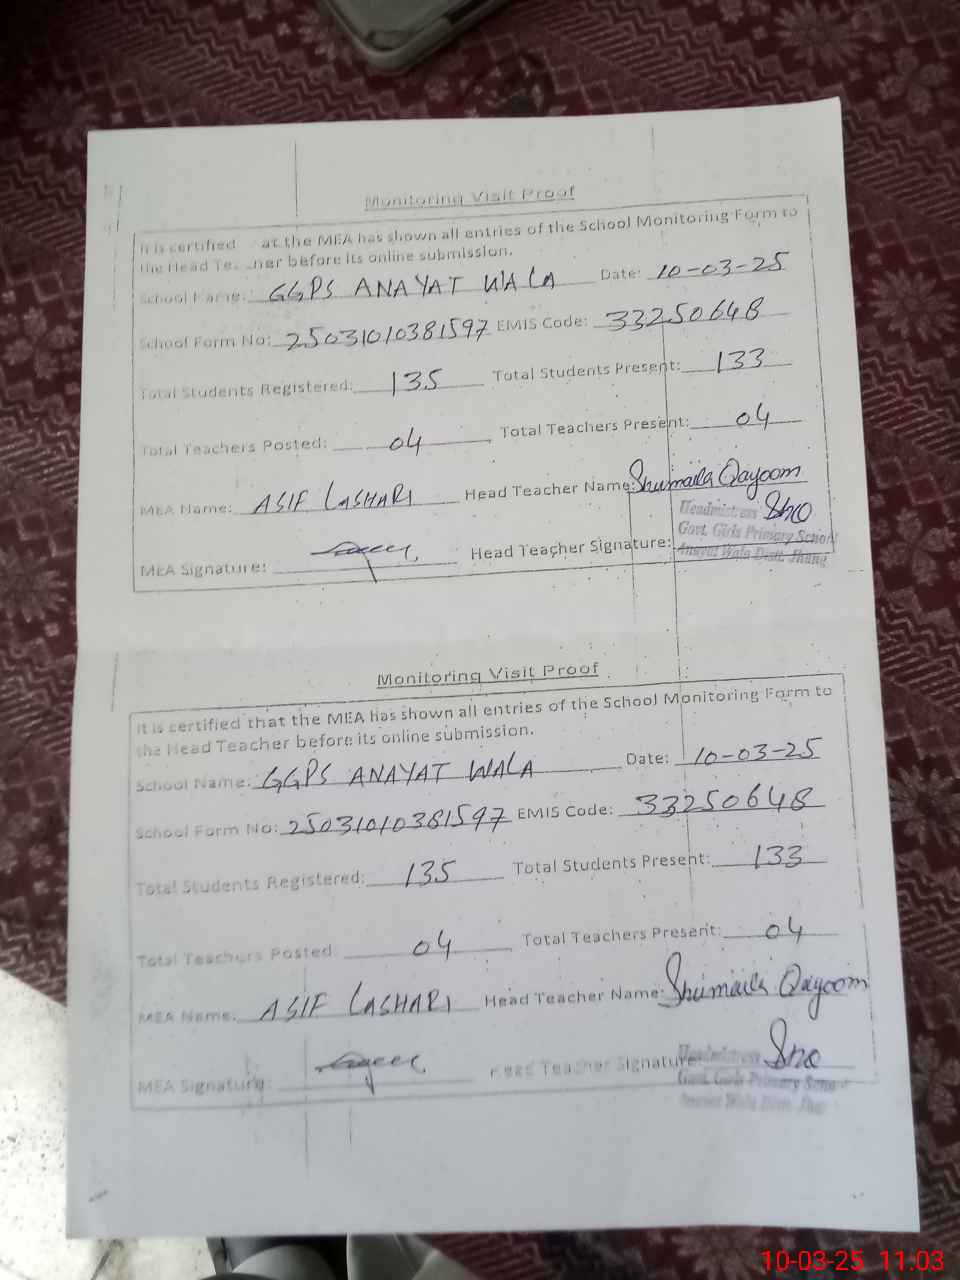 Monitoring Visit Proof
It is certified at the MEA has shown all entries of the School Monitoring Form to
the Head Te ner before its online submission.
School Name: GGPS ANAYAT WALA Date: 10-03-25
School Form No: 25031010381597 EMIS Code: 33250648
Total Students Registered: 135 Total Students Present: 133
Total Teachers Posted: 04 Total Teachers Present: 04
MEA Name: ASIF LASHARI Head Teacher Name: Shumaila Qayoom
Headmistress
Govt. Girls Primary School
MEA Signature: Head Teacher Signature: Anayat Wala Distt. Jhang
Monitoring Visit Proof
It is certified that the MEA has shown all entries of the School Monitoring Form to
the Head Teacher before its online submission.
School Name: GGPS ANAYAT WALA Date: 10-03-25
School Form No: 25031010381597 EMIS Code: 33250648
Total Students Registered: 135 Total Students Present: 133
Total Teachers Posted: 04 Total Teachers Present: 04
MEA Name: ASIF LASHARI Head Teacher Name: Shumaila Qayoom
Headmistress
MEA Signature: Head Teacher Signature: Govt. Girls Primary
Anayat Wala Distt.
10-03-25 11.03